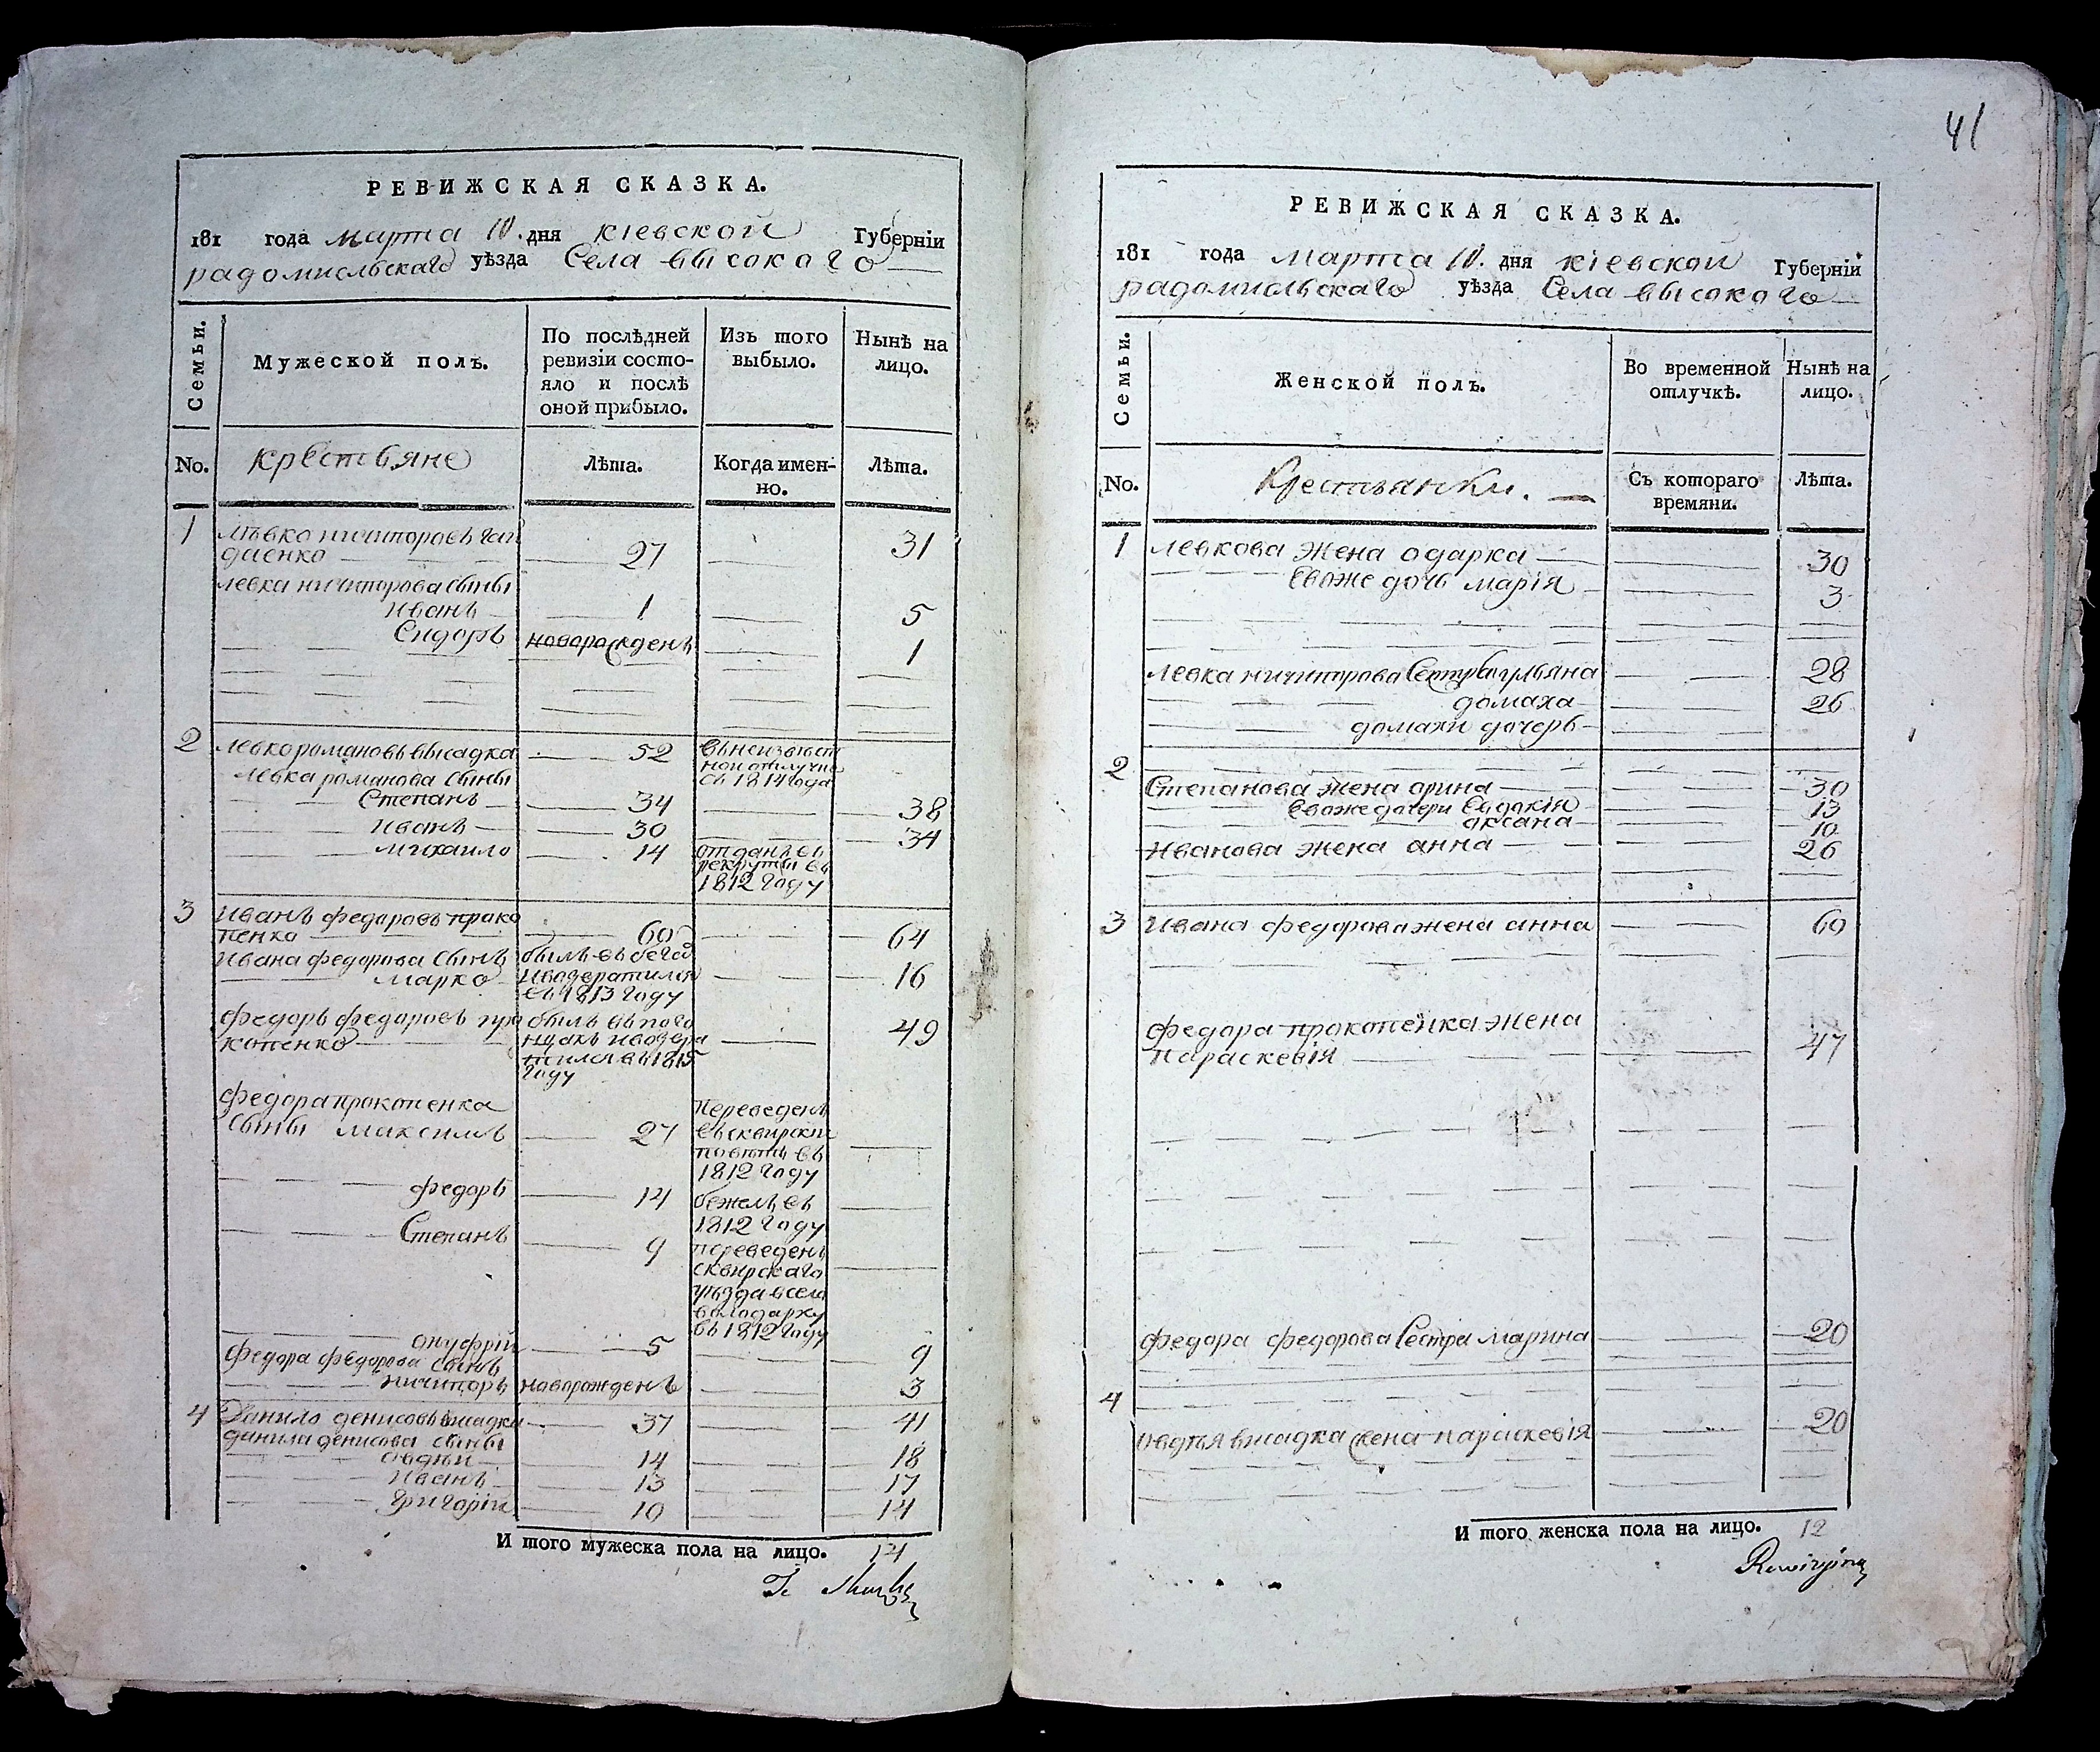 РЕВИЖСКАЯ СКАЗКА.
181 года марта 10. дня кіевской Губерніи
радомисльскаго уѣзда Села высокого
Семьи.
Мужеской полъ.
По послѣдней
ревизіи состо-
яло и послѣ
оной прибыло.
Изъ того
выбыло.
Нынѣ на
лицо.
No.
крестьяне
Лѣта.
Когда имен-
но.
Лѣта.
1 левко ничипоровъ гай
даенко 27 31
левка ничипорова сыны
иванъ 1 5
Сидоръ новорожденъ 1
2 левко романовъ высадка 52 въ неизвест
ной отлучке
съ 1814 года
левка романова сыны
Степанъ 34 38
иванъ 30 34
михайло 14 отданъ въ
рекруты въ
1812 году
3 иванъ федоровъ проко
пенко 60 64
ивана федорова сынъ былъ въ бегах
марко и возвратился 16
въ 1813 году
федоръ федоровъ про
копенко 49
былъ въ
тился въ 1815
году
федора прокопенка
сыны максимъ 27 переведенъ
въ сквирски
поветъ въ
1812 году
федоръ 14 бежалъ въ
1812 году
Степанъ 9 переведенъ
сквирскаго
уѣзда в село
володарку
въ 1812 году
онуфрій 5 9
федора федорова сынъ
ничипоръ новорожденъ 3
4 данило денисовъ высадка 37 41
данила денисова сыны
овдѣй 14 18
иванъ 13 17
григорій 10 14
И того мужеска пола на лицо. 14
41
РЕВИЖСКАЯ СКАЗКА.
181 года марта 10. дня кіевской Губерніи
радомисльскаго уѣзда Села высокого
Семьи.
Женской полъ.
Во временной
отлучкѣ.
Нынѣ на
лицо.
No.
Крестьянки.
Съ котораго
времяни.
Лѣта.
1 левкова жена одарка 30
евоже дочь марія 3
левка ничипорова Сестра ульяна 28
домаха 26
домахи дочерь
2
Степанова жена орина 30
евоже дочери Евдокія 13
оксана 10
иванова жена анна 26
3 ивана федорова жена анна 60
федора прокопенка жена
параскевія 47
федора федорова Сестра марина 20
4
овдѣя высадка жена параскевія 20
И того женска пола на лицо. 12